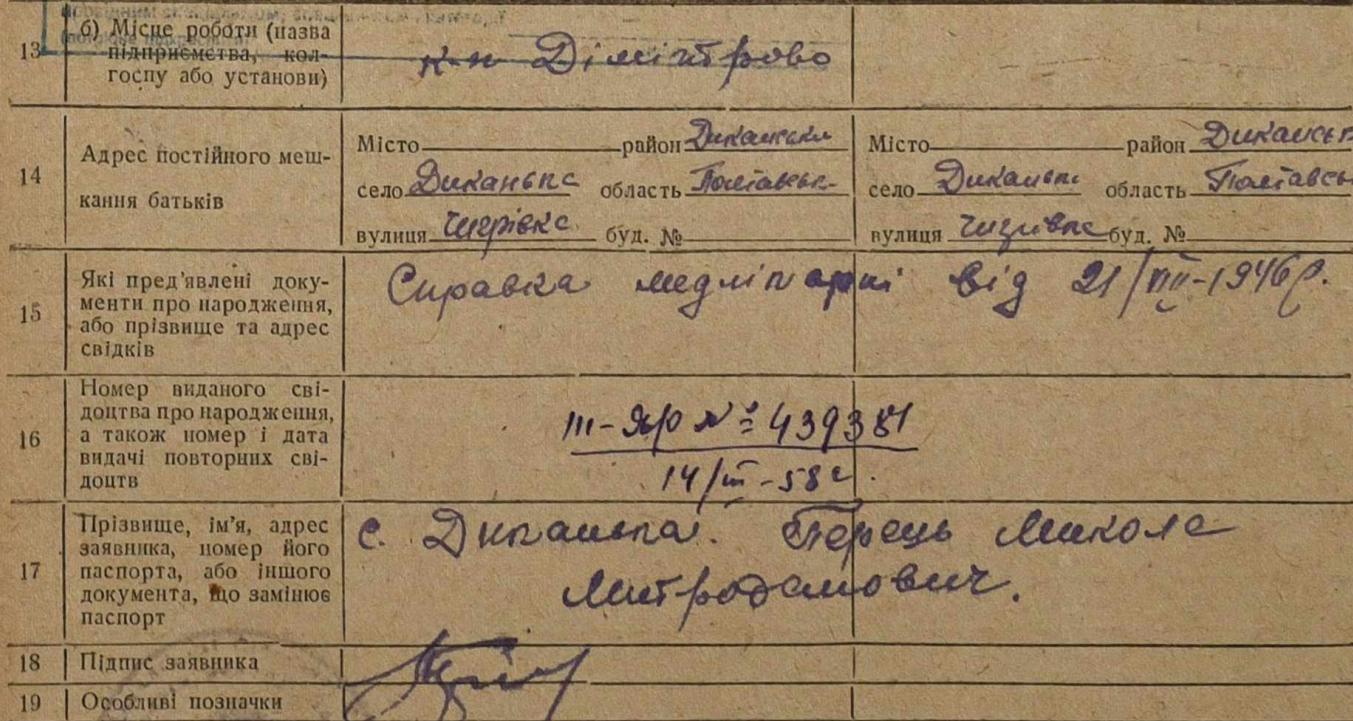 13 б) Місце роботи (назва
підприємства, кол-
госпу або установи)
к-п Дімітрово
14 Адрес постійного меш-
кання батьків
Місто район Диканськи
село Диканьпс область Полтавськ-
вулиця буд. №
Місто район Диканськ
село Диканьпс область Полтавськ
вулиця буд. №
15 Які пред'явлені доку-
менти про народження,
або прізвище та адрес
свідків
Справка медлікарні від 21/VII-1946р.
16 Номер виданого сві-
доцтва про народження,
а також номер і дата
видачі повторних сві-
доцтв
III-ЯР № 439381
14/III-58г.
17 Прізвище, ім'я, адрес
заявника, номер його
паспорта, або іншого
документа, що замінює
паспорт
с. Диканька. Перець Микола
Митрофанович.
18 Підпис заявника
19 Особливі позначки